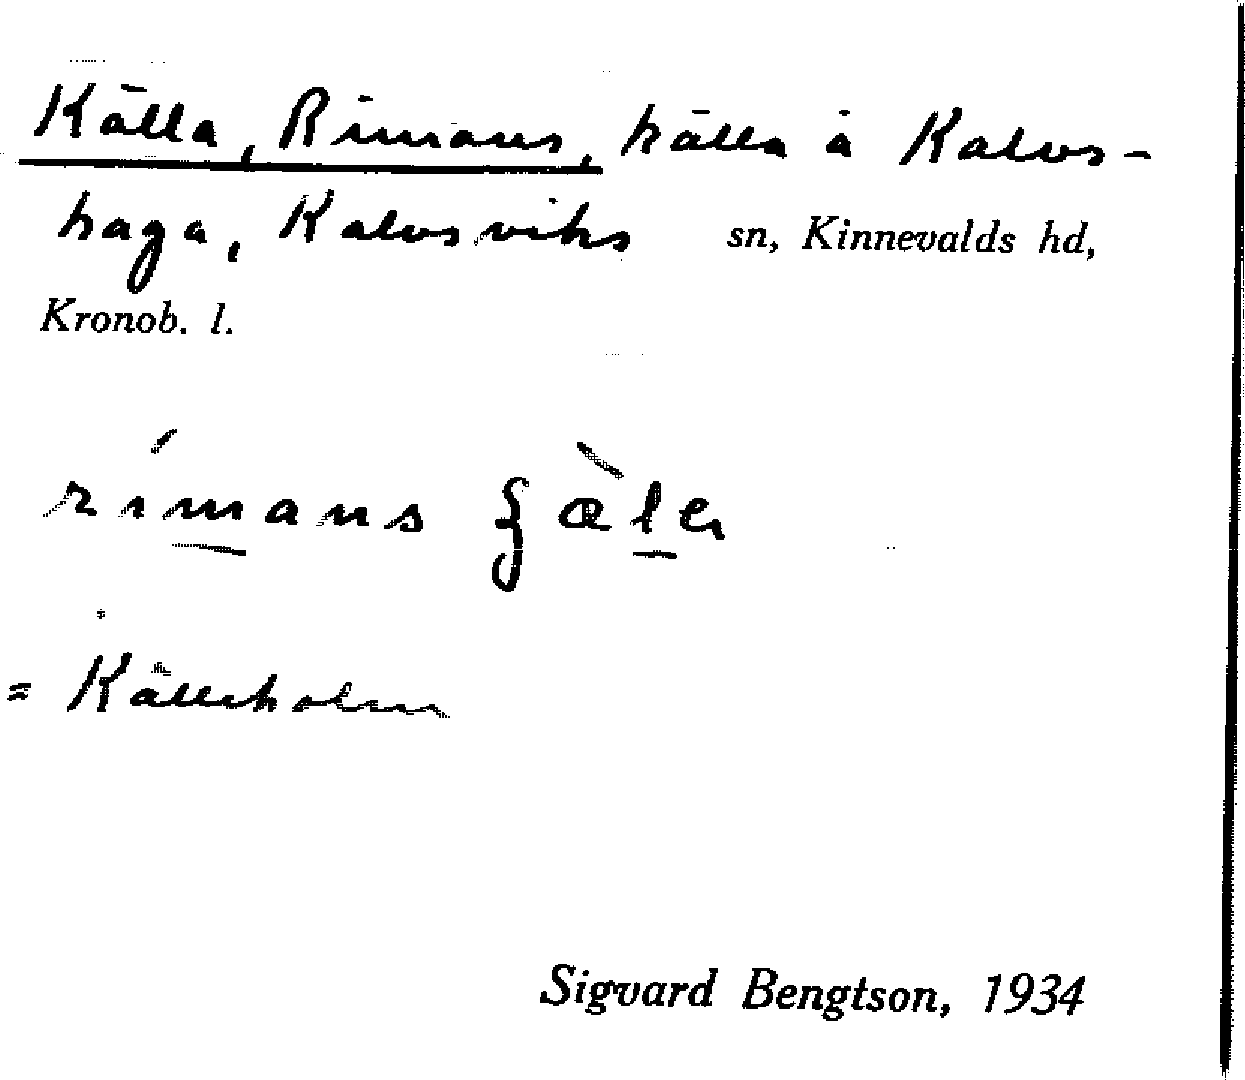 Källa, Rimans, källa å Kalvs-
haga, Kalvsviks sn, Kinnevalds hd,
Kronob. l.
rímans
= Källeholm
Sigvard Bengtson, 1934